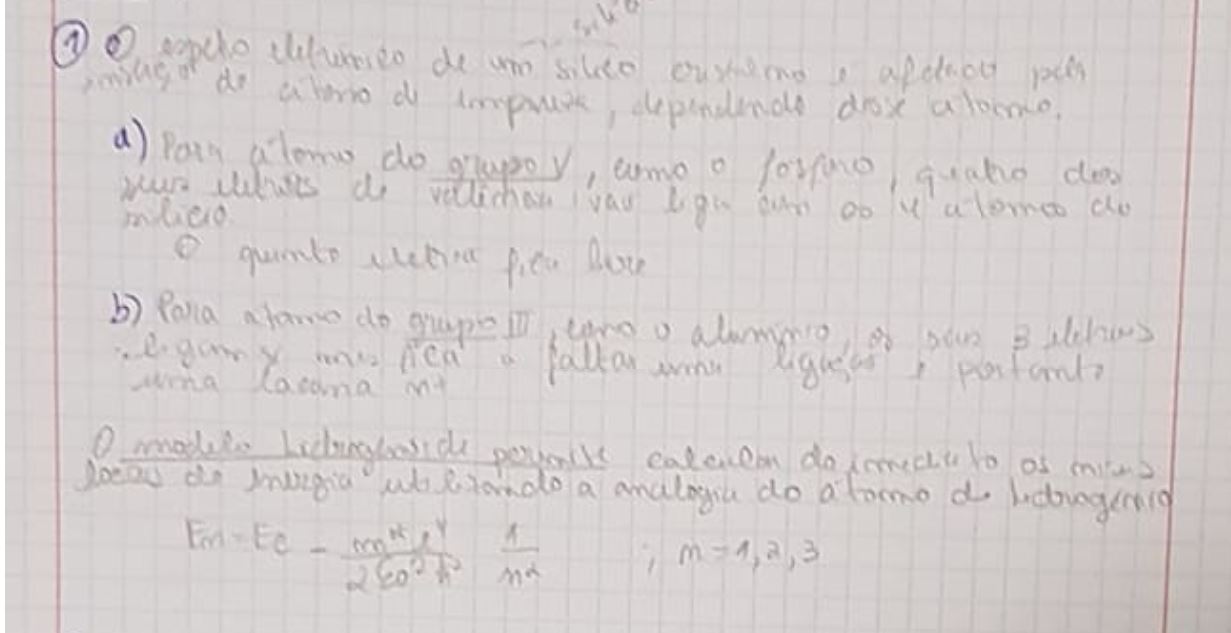 ① O espetro eletronico de um silicio e afetado pela
de atomo de impureza, dependendo desse atomo.
a) Para atomo do grupo V, como o fosforo, quatro dos
seus eletrões de valencia vao ligar com os 4 atomos de
silicio.
O quinto eletrao fica livre
b) Para atomo do grupo III, como o aluminio, os seus 3 eletroes
ligam mas fica a faltar uma ligação, portanto
uma lacuna
O modelo hidrogenoide permite calcular de imediato os niveis
locais de energia utilizando a analogia do atomo de hidrogenio
En = Ec - mn* e⁴ / 2 ε0² h² 1 / n² ; n = 1, 2, 3